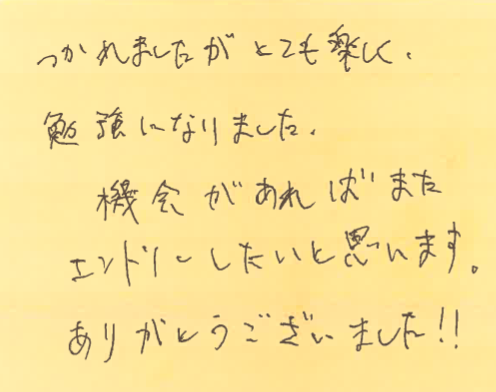 つかれましたがとても楽しく、
勉強になりました。
機会があればまた
エントリーしたいと思います。
ありがとうございました!!